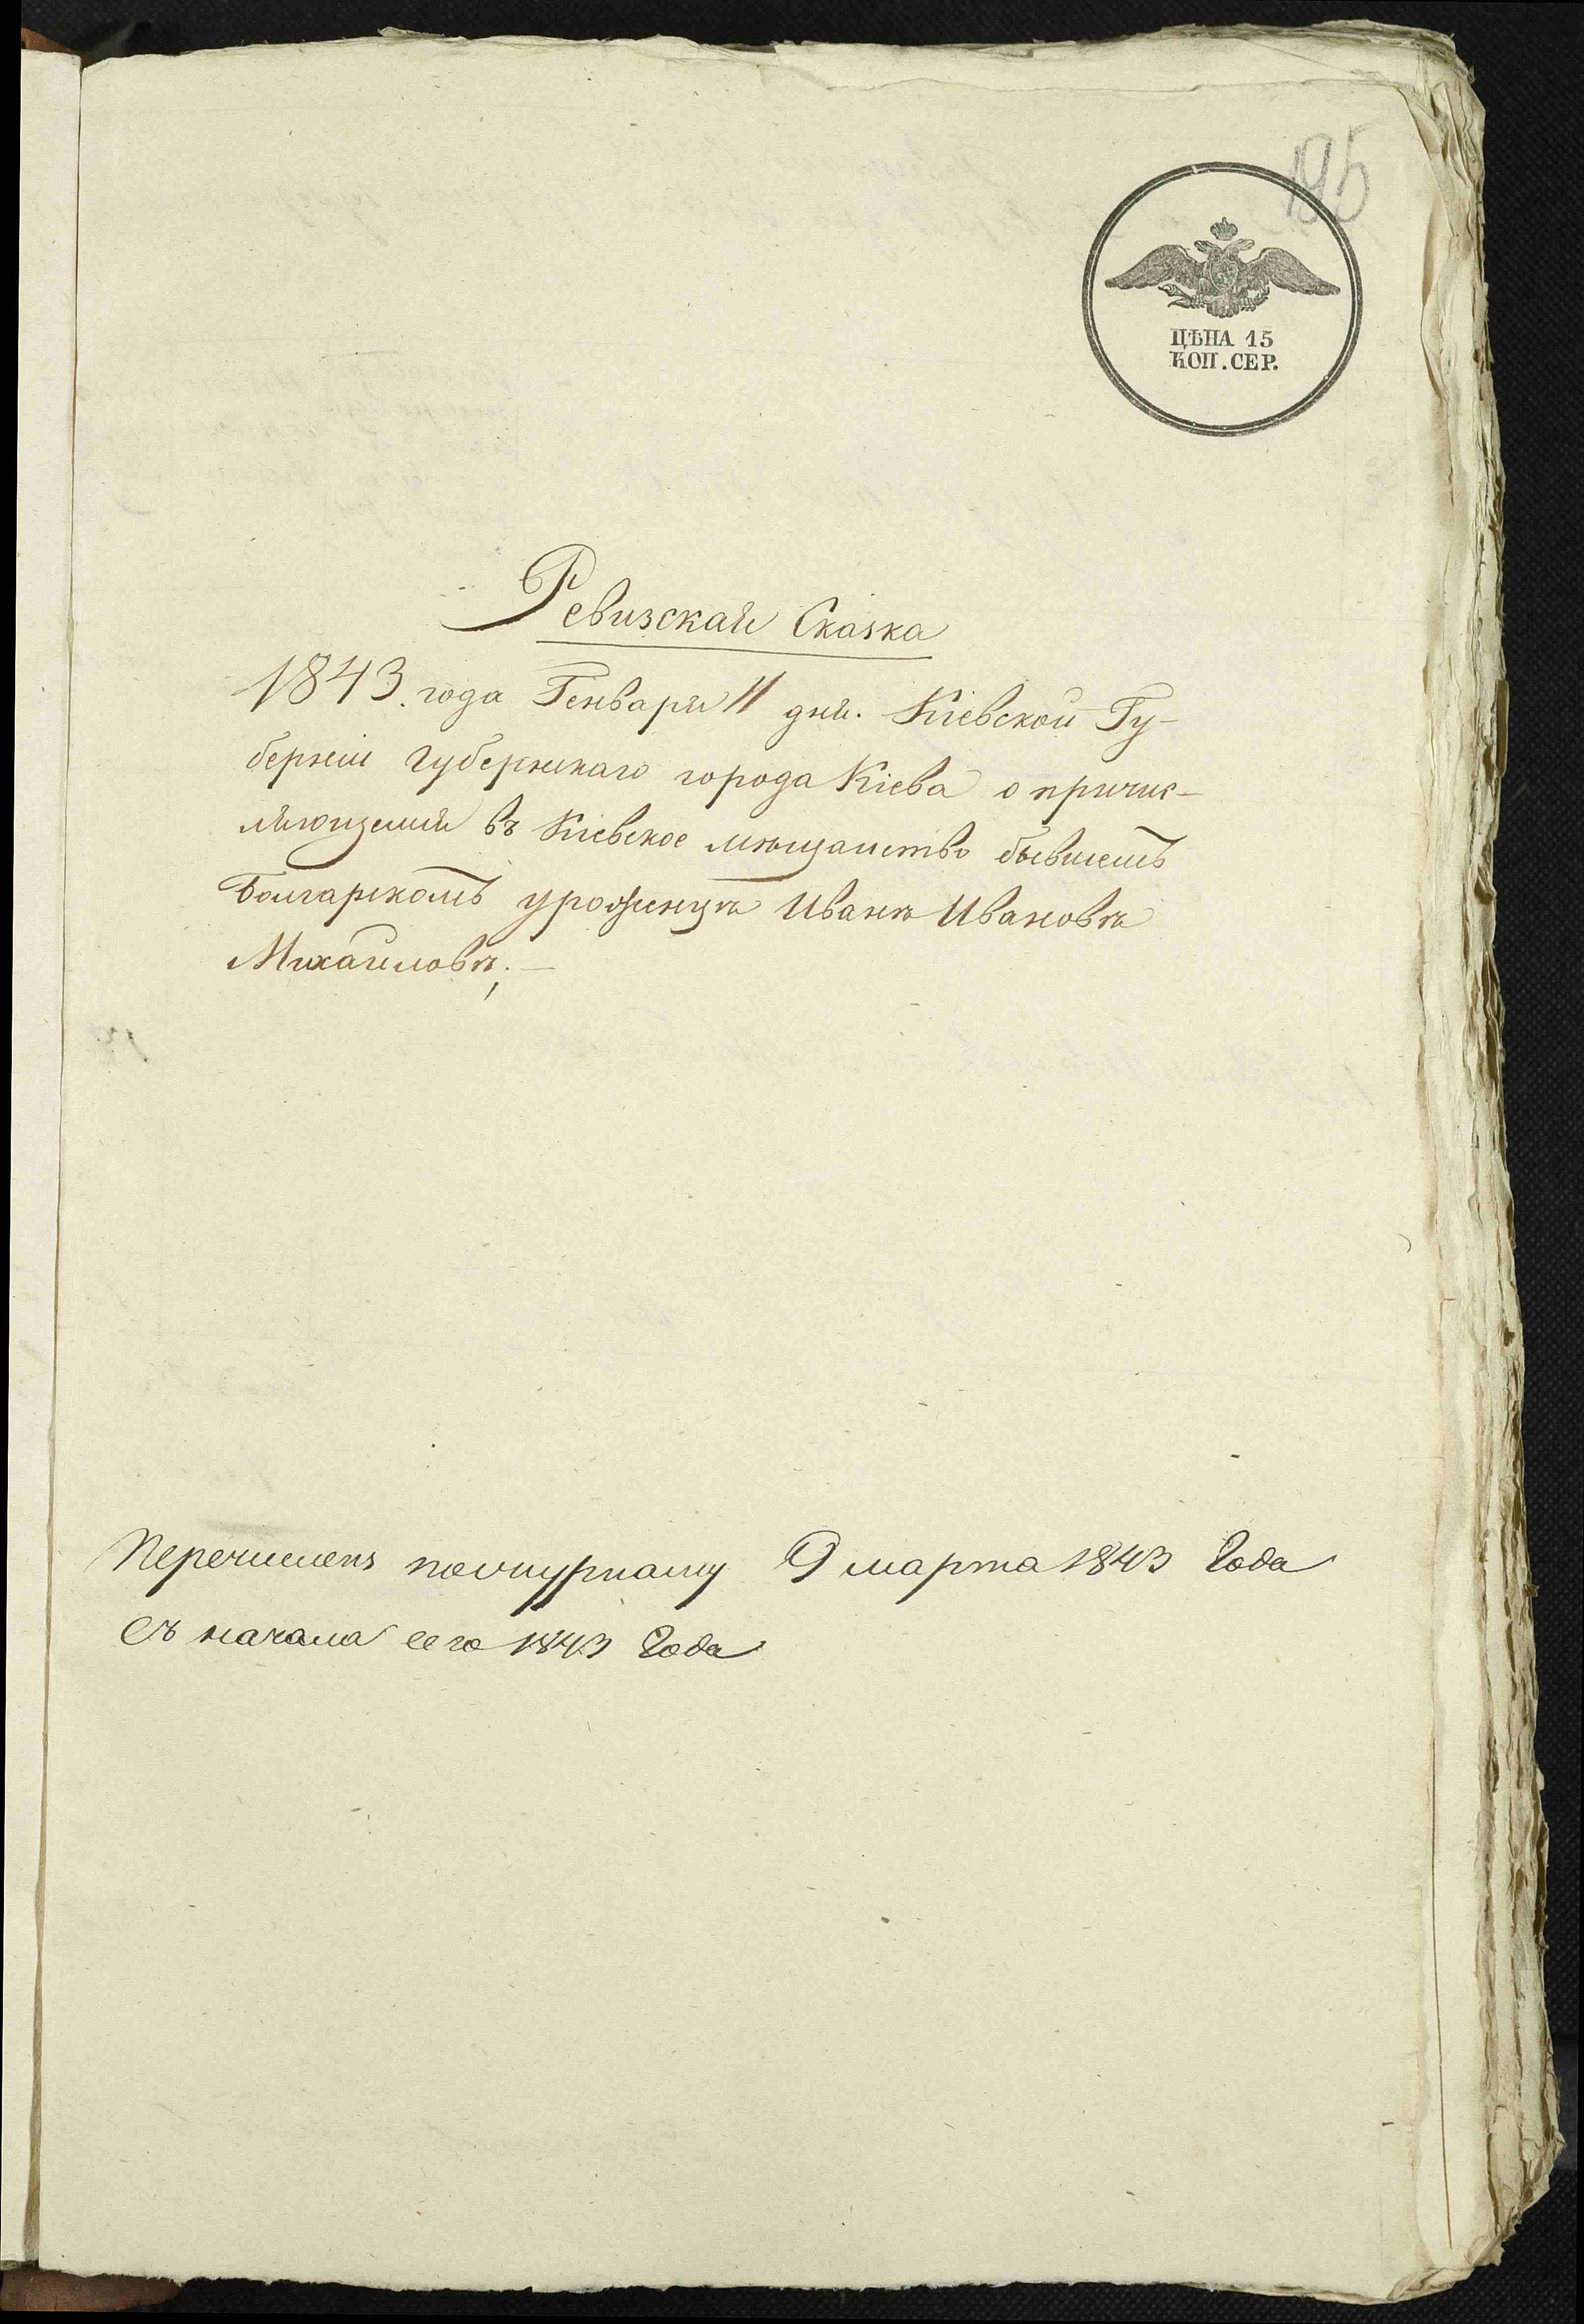 195
ЦѢНА 15
КОП. СЕР.
Ревизская Сказка
1843. года Генваря 11 дня. Кіевской Гу-
берніи Губернскаго города Кіева о причис-
ляющемся въ Кіевское мѣщанство бывшемъ
Болгарскомъ уроженцѣ Иванѣ Ивановѣ
Михайловѣ;
Перечисленъ по журналу 9 марта 1843 Года
Съ начала сего 1843 Года